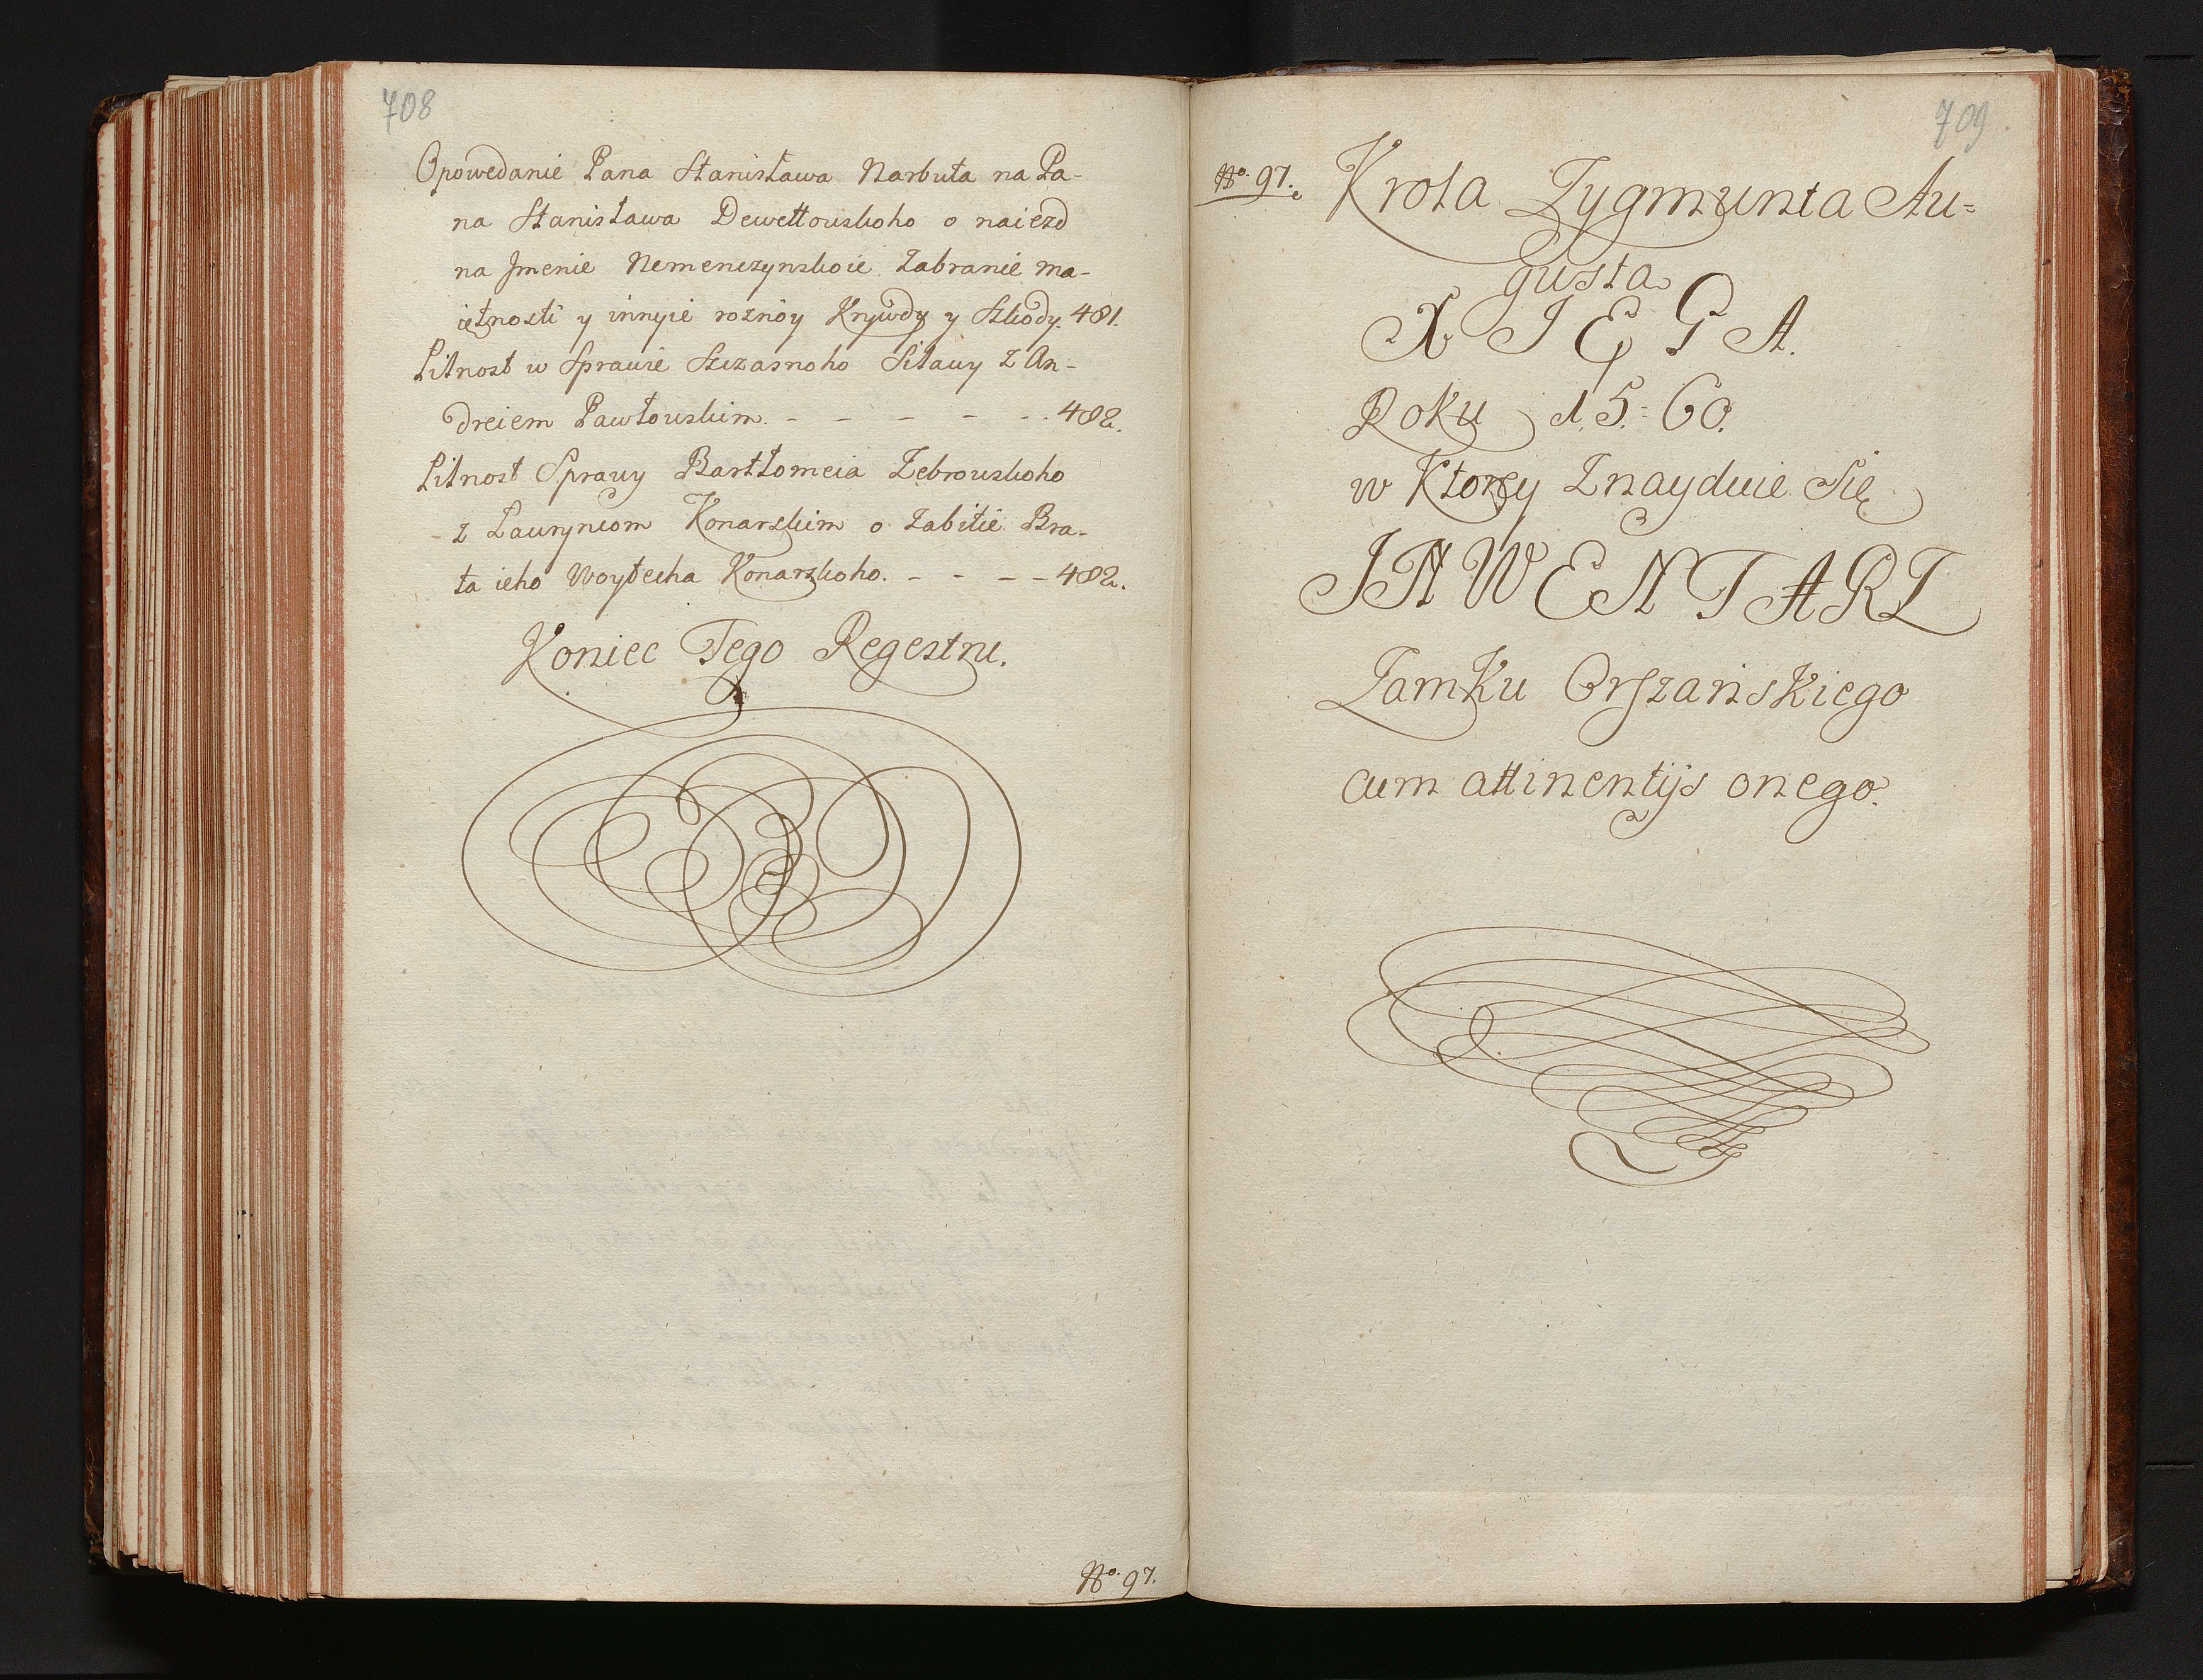 708
Opowedanie Pana Stanisława Narbuta na Pa-
na Stanisława Dewettouskoho o naiezd
na Jmenie Nemenczynskoie Zabranie ma-
iętnosti y innyie roznoy Krywdy y Szkody. 481.
Pilnost w Sprawie Szczasnoho Sitawy z An-
dreiem Pawłouskim. - - - - - 482.
Pilnost Sprawy Bartłomeia Zebrouskoho
- z Lauryniom Konarskim o Zabitie Bra-
ta ieho Woytecha Konarskoho. - - - - 482.
Koniec Tego Regestru.
No. 97.
709
No. 97. Krola Zygmunta Au=
gusta
XIĘGA.
Roku 15=60.
w Ktorey Znayduie Się
INWENTARZ
Zamku Orszańskiego
cum attinentijs onego.